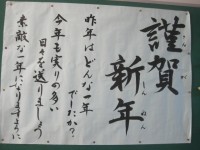 謹賀
新年
しんねん
昨年はどんな一年
でしたか?
今年も実りの多い
日々を送りましょう
素敵な一年になりますように